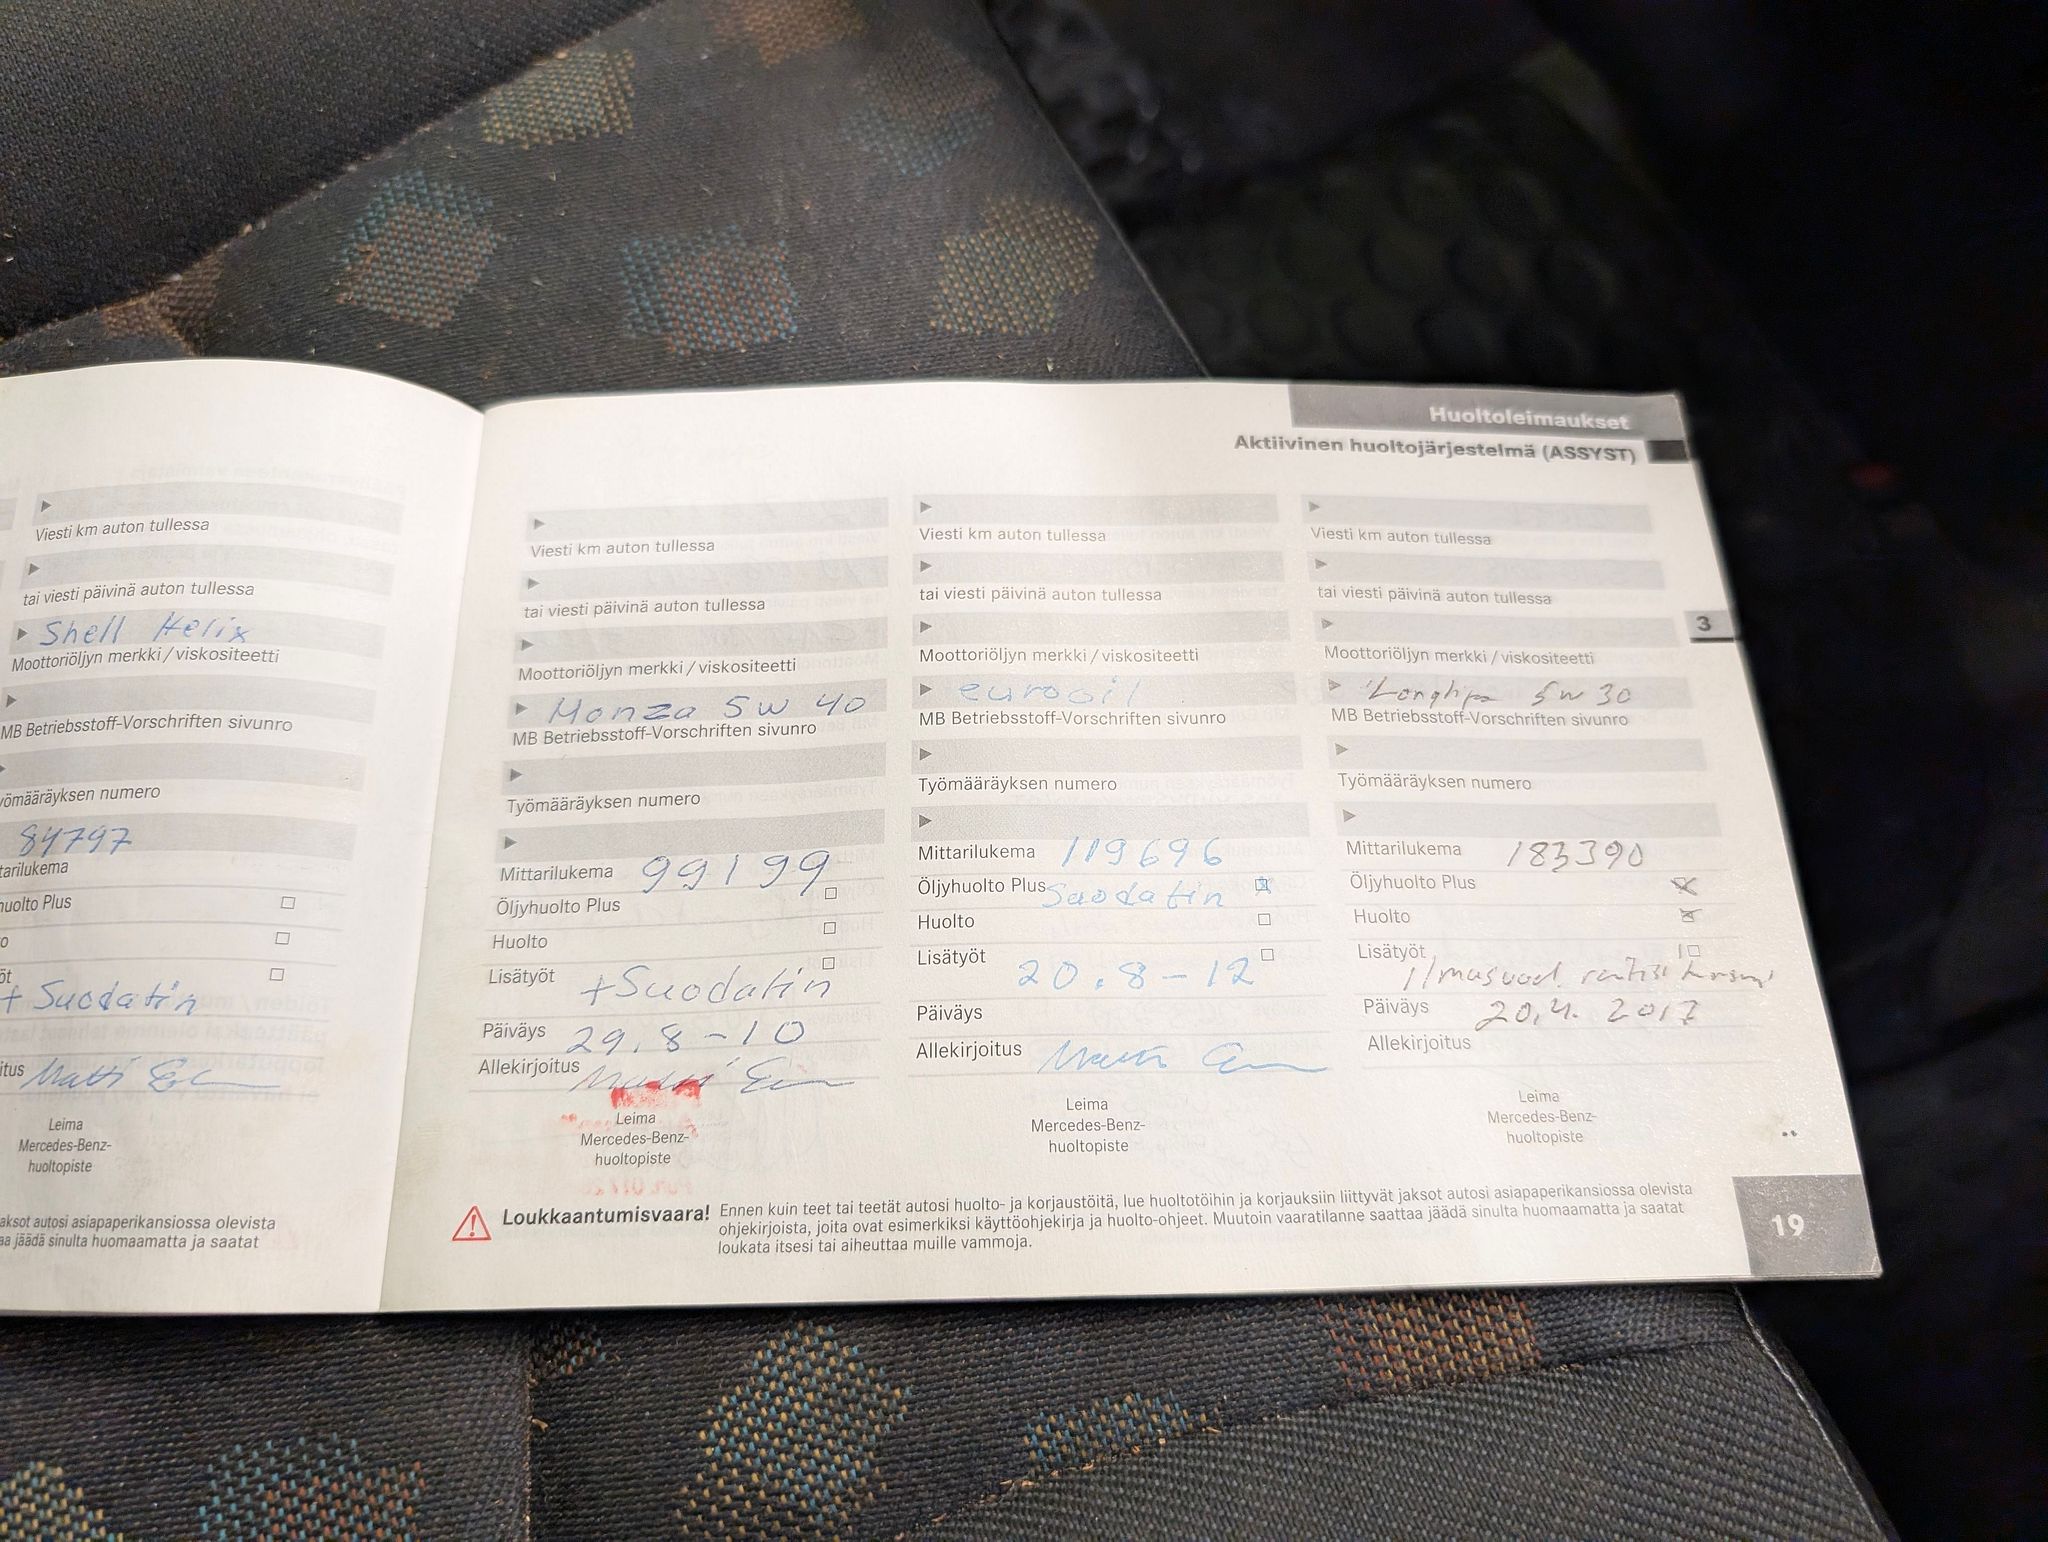 Viesti km auton tullessa
tai viesti päivinä auton tullessa
Shell Helix
Moottoriöljyn merkki / viskositeetti
MB Betriebsstoff-Vorschriften sivunro
yömääräyksen numero
84797
tarilukema
huolto Plus
o
öt
+ Suodatin
itus Matti
Leima
Mercedes-Benz-
huoltopiste
aksot autosi asiapaperikansiossa olevista
aa jäädä sinulta huomaamatta ja saatat
Huoltoleimaukset
Aktiivinen huoltojärjestelmä (ASSYST)
3
Viesti km auton tullessa
tai viesti päivinä auton tullessa
Moottoriöljyn merkki / viskositeetti
Monza 5w 40
MB Betriebsstoff-Vorschriften sivunro
Työmääräyksen numero
Mittarilukema 99199
Öljyhuolto Plus
Huolto
Lisätyöt +Suodatin
Päiväys 29.8-10
Allekirjoitus Matti
Leima
Mercedes-Benz-
huoltopiste
Viesti km auton tullessa
tai viesti päivinä auton tullessa
Moottoriöljyn merkki / viskositeetti
eurooil
MB Betriebsstoff-Vorschriften sivunro
Työmääräyksen numero
Mittarilukema 119696
Öljyhuolto Plus Suodatin
Huolto
Lisätyöt
20.8-12
Päiväys
Allekirjoitus Matti
Leima
Mercedes-Benz-
huoltopiste
Viesti km auton tullessa
tai viesti päivinä auton tullessa
Moottoriöljyn merkki / viskositeetti
5w 30
MB Betriebsstoff-Vorschriften sivunro
Työmääräyksen numero
Mittarilukema 183390
Öljyhuolto Plus
Huolto
Lisätyöt
Ilmasuod.
Päiväys 20.4. 2017
Allekirjoitus
Leima
Mercedes-Benz-
huoltopiste
Loukkaantumisvaara! Ennen kuin teet tai teetät autosi huolto- ja korjaustöitä, lue huoltotöihin ja korjauksiin liittyvät jaksot autosi asiapaperikansiossa olevista
ohjekirjoista, joita ovat esimerkiksi käyttöohjekirja ja huolto-ohjeet. Muutoin vaaratilanne saattaa jäädä sinulta huomaamatta ja saatat
loukata itsesi tai aiheuttaa muille vammoja.
19